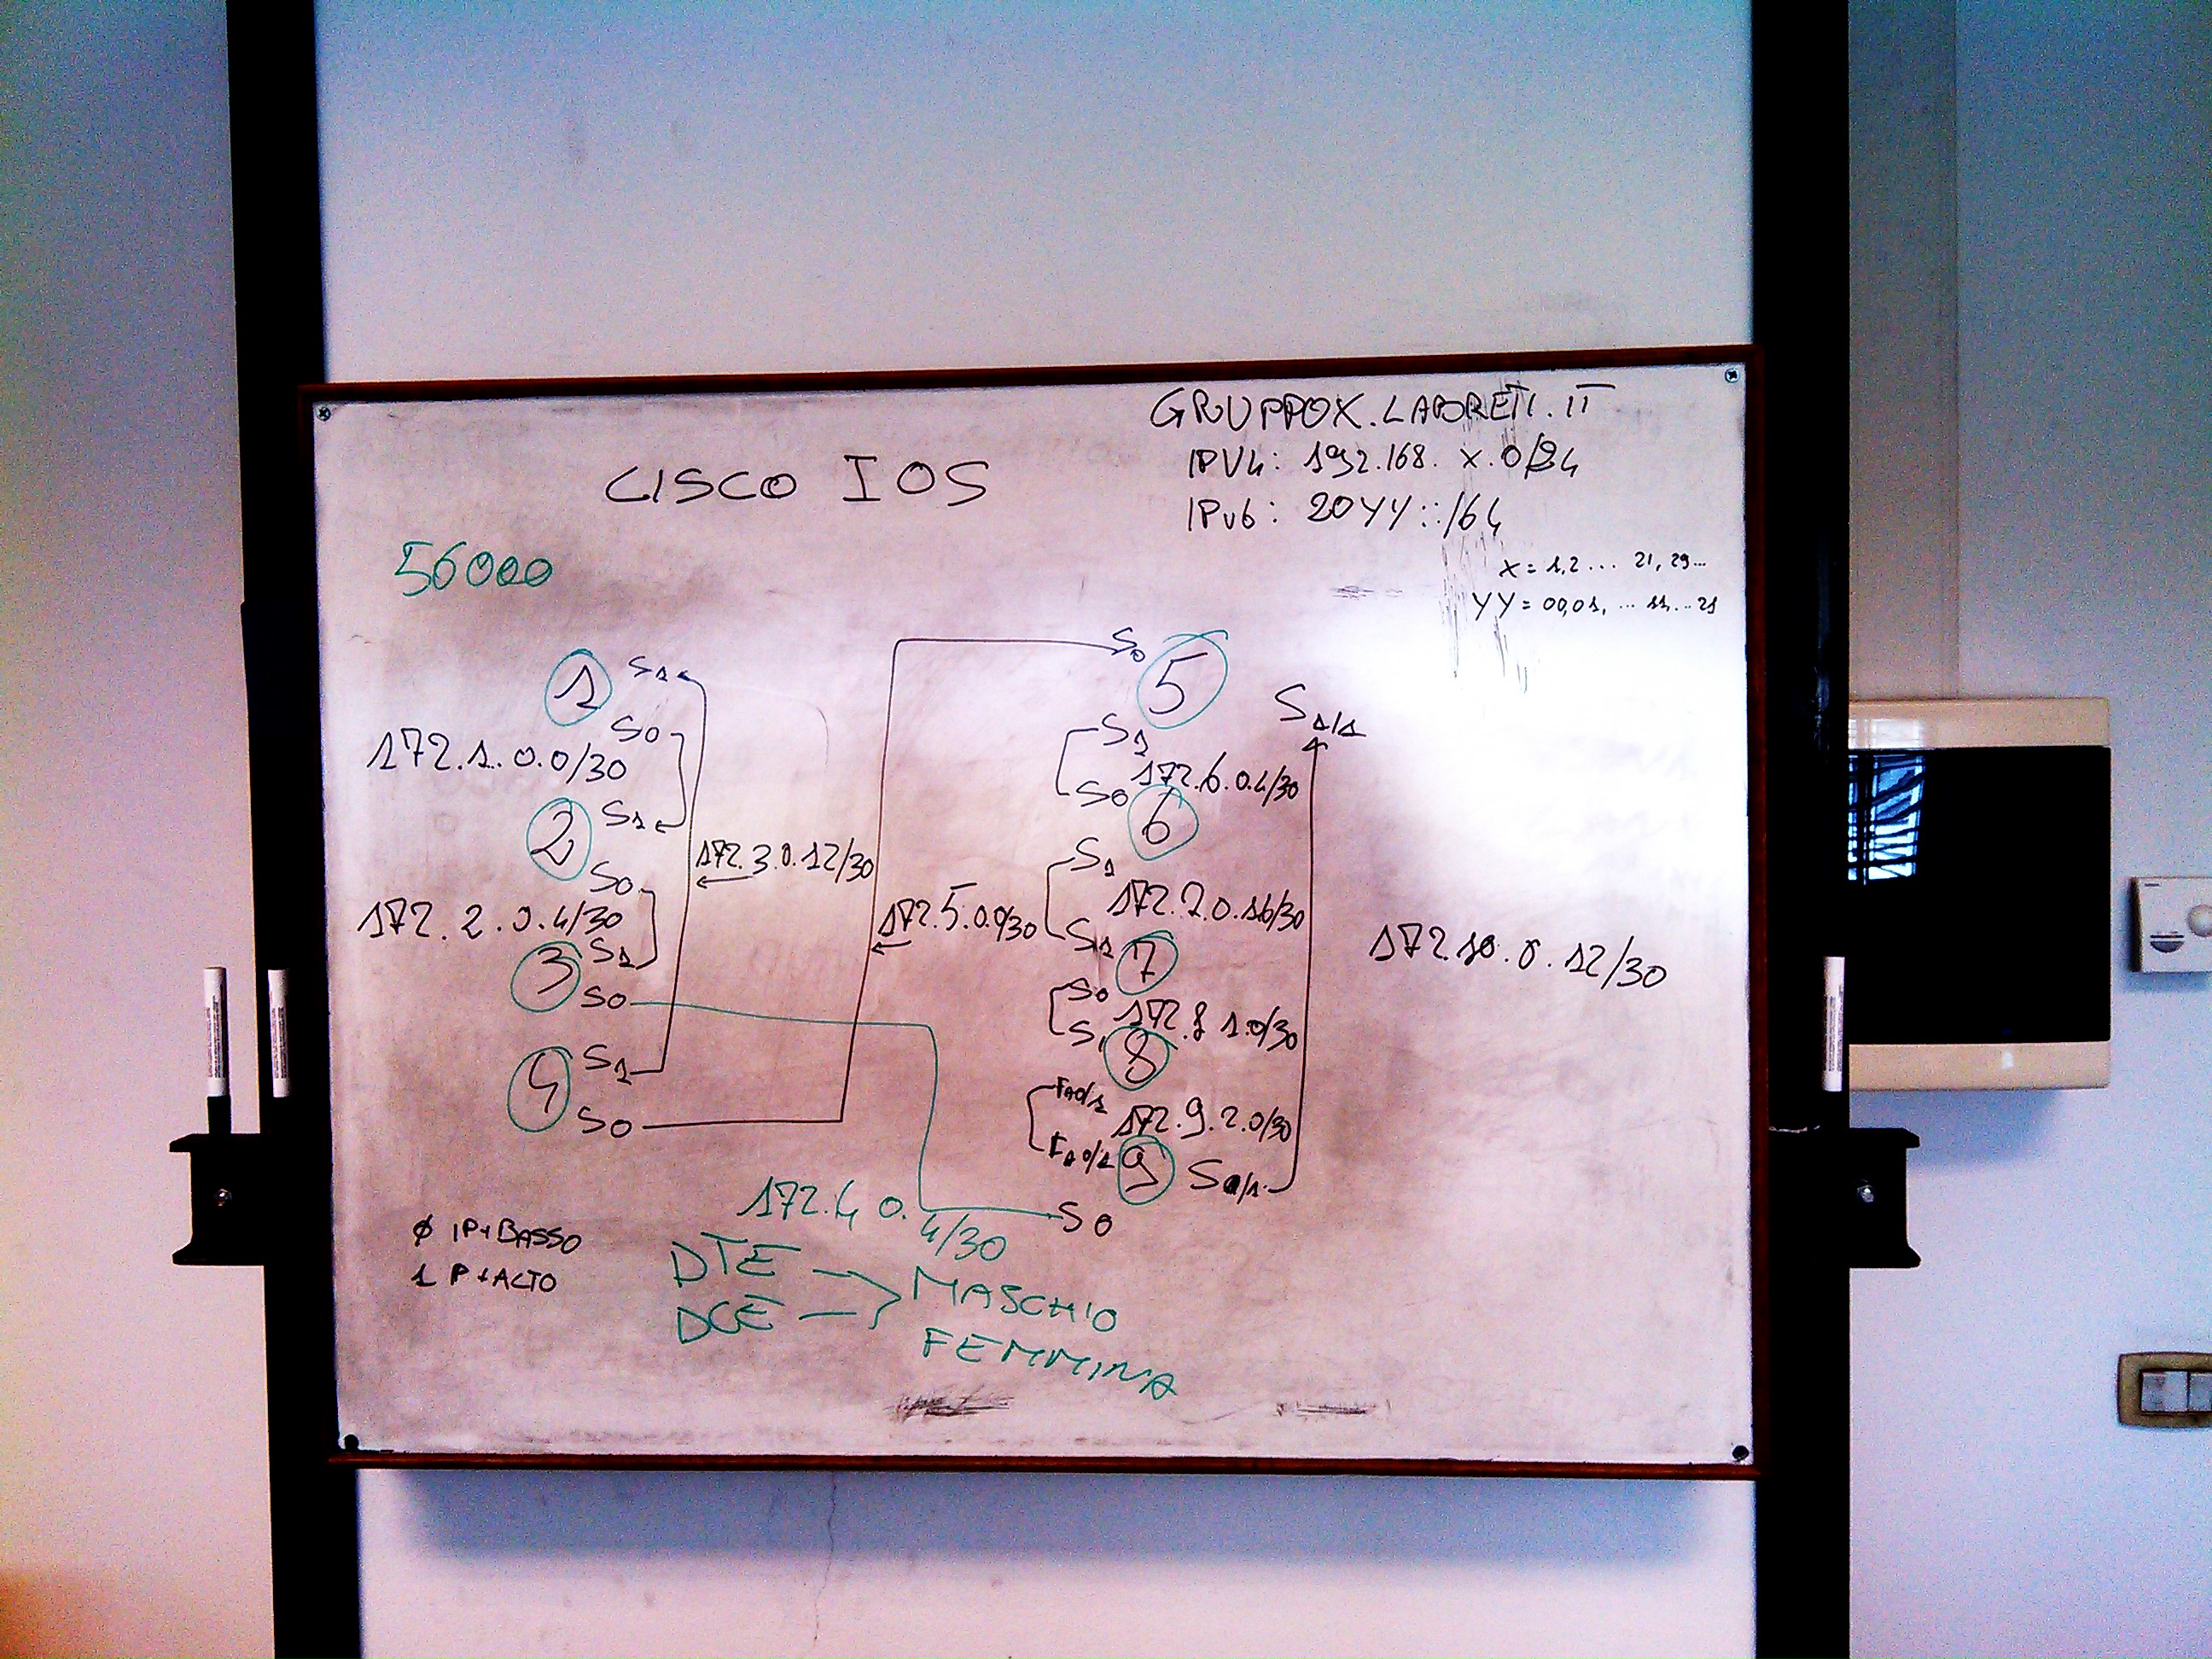 GRUPPOX.LABORETI.IT
CISCO IOS
IPV4: 192.168. X.0/24
IPv6: 20YY::/64
56000
X = 1,2 ... 21, 29...
YY = 00,01, ... 11...21
1 S1
S0
172.1.0.0/30
2 S1
S0
172.2.0.4/30
3 S1
S0
4 S1
S0
172.3.0.12/30
172.5.0.0/30
S0 5
S1/1
S1
172.6.0.4/30
S0 6
S1
172.7.0.16/30
S1 7
S0
172.8 1.0/30
S1 8
FA0/1
172.9.2.0/30
FA0/1 9 S0/1
S0
172.10.0.12/30
172.4 0. 4/30
Ø IP+BASSO
1 IP+ALTO
DTE
DCE
MASCHIO
FEMMINA